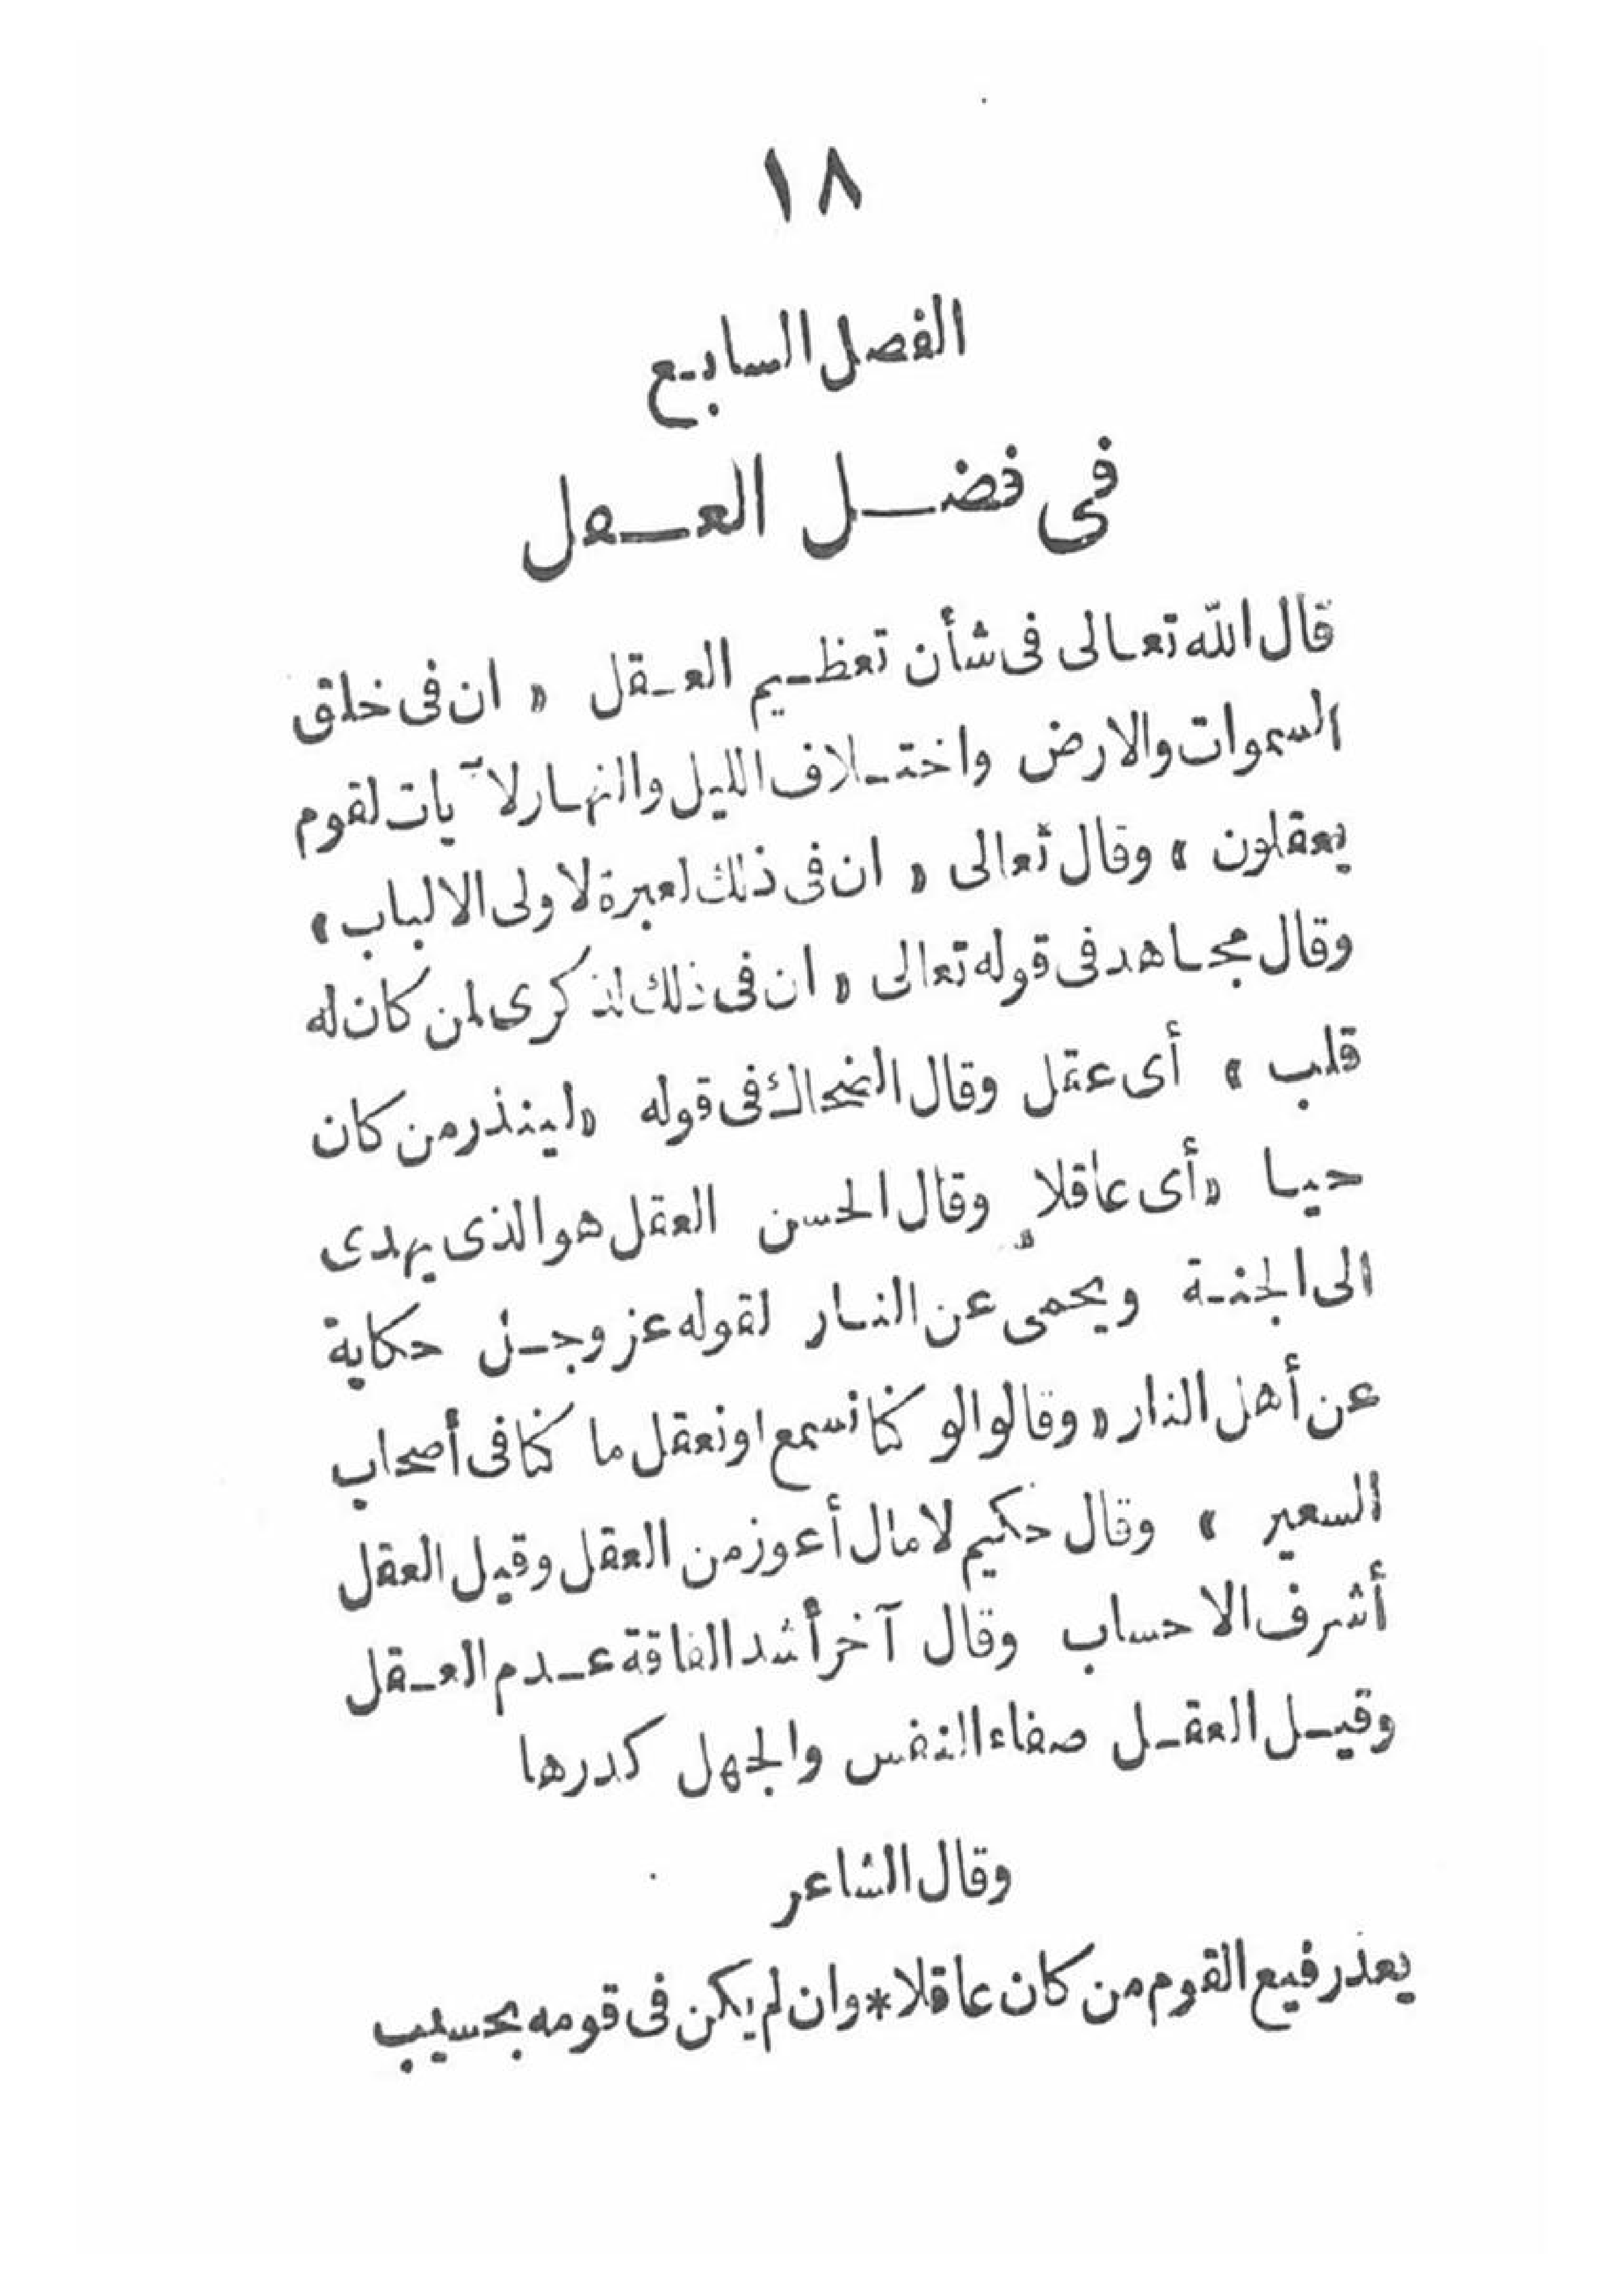 ١٨
الفصل السابع
فى فضل العقل
قال الله تعالى فى شأن تعظيم العقل « ان فى خلق
السموات والارض واختلاف الليل والنهار لآيات لقوم
يعقلون » وقال تعالى « ان فى ذلك لعبرة لاولى الالباب »
وقال مجاهد فى قوله تعالى « ان فى ذلك لذكرى لمن كان له
قلب » أى عقل وقال الضحاك فى قوله « لينذر من كان
حيا « أى عاقلا وقال الحسن العقل هو الذى يهدى
الى الجنة ويحمى عن النار لقوله عز وجل حكاية
عن أهل النار « وقالوا لو كنا نسمع او نعقل ما كنا فى أصحاب
السعير » وقال حكيم لا مال أعوز من العقل وقيل العقل
أشرف الاحساب وقال آخر أشد الفاقة عدم العقل
وقيل العقل صفاء النفس والجهل كدرها
وقال الشاعر
يعذر فيع القوم من كان عاقلا * وان لم يكن فى قومه بحسيب